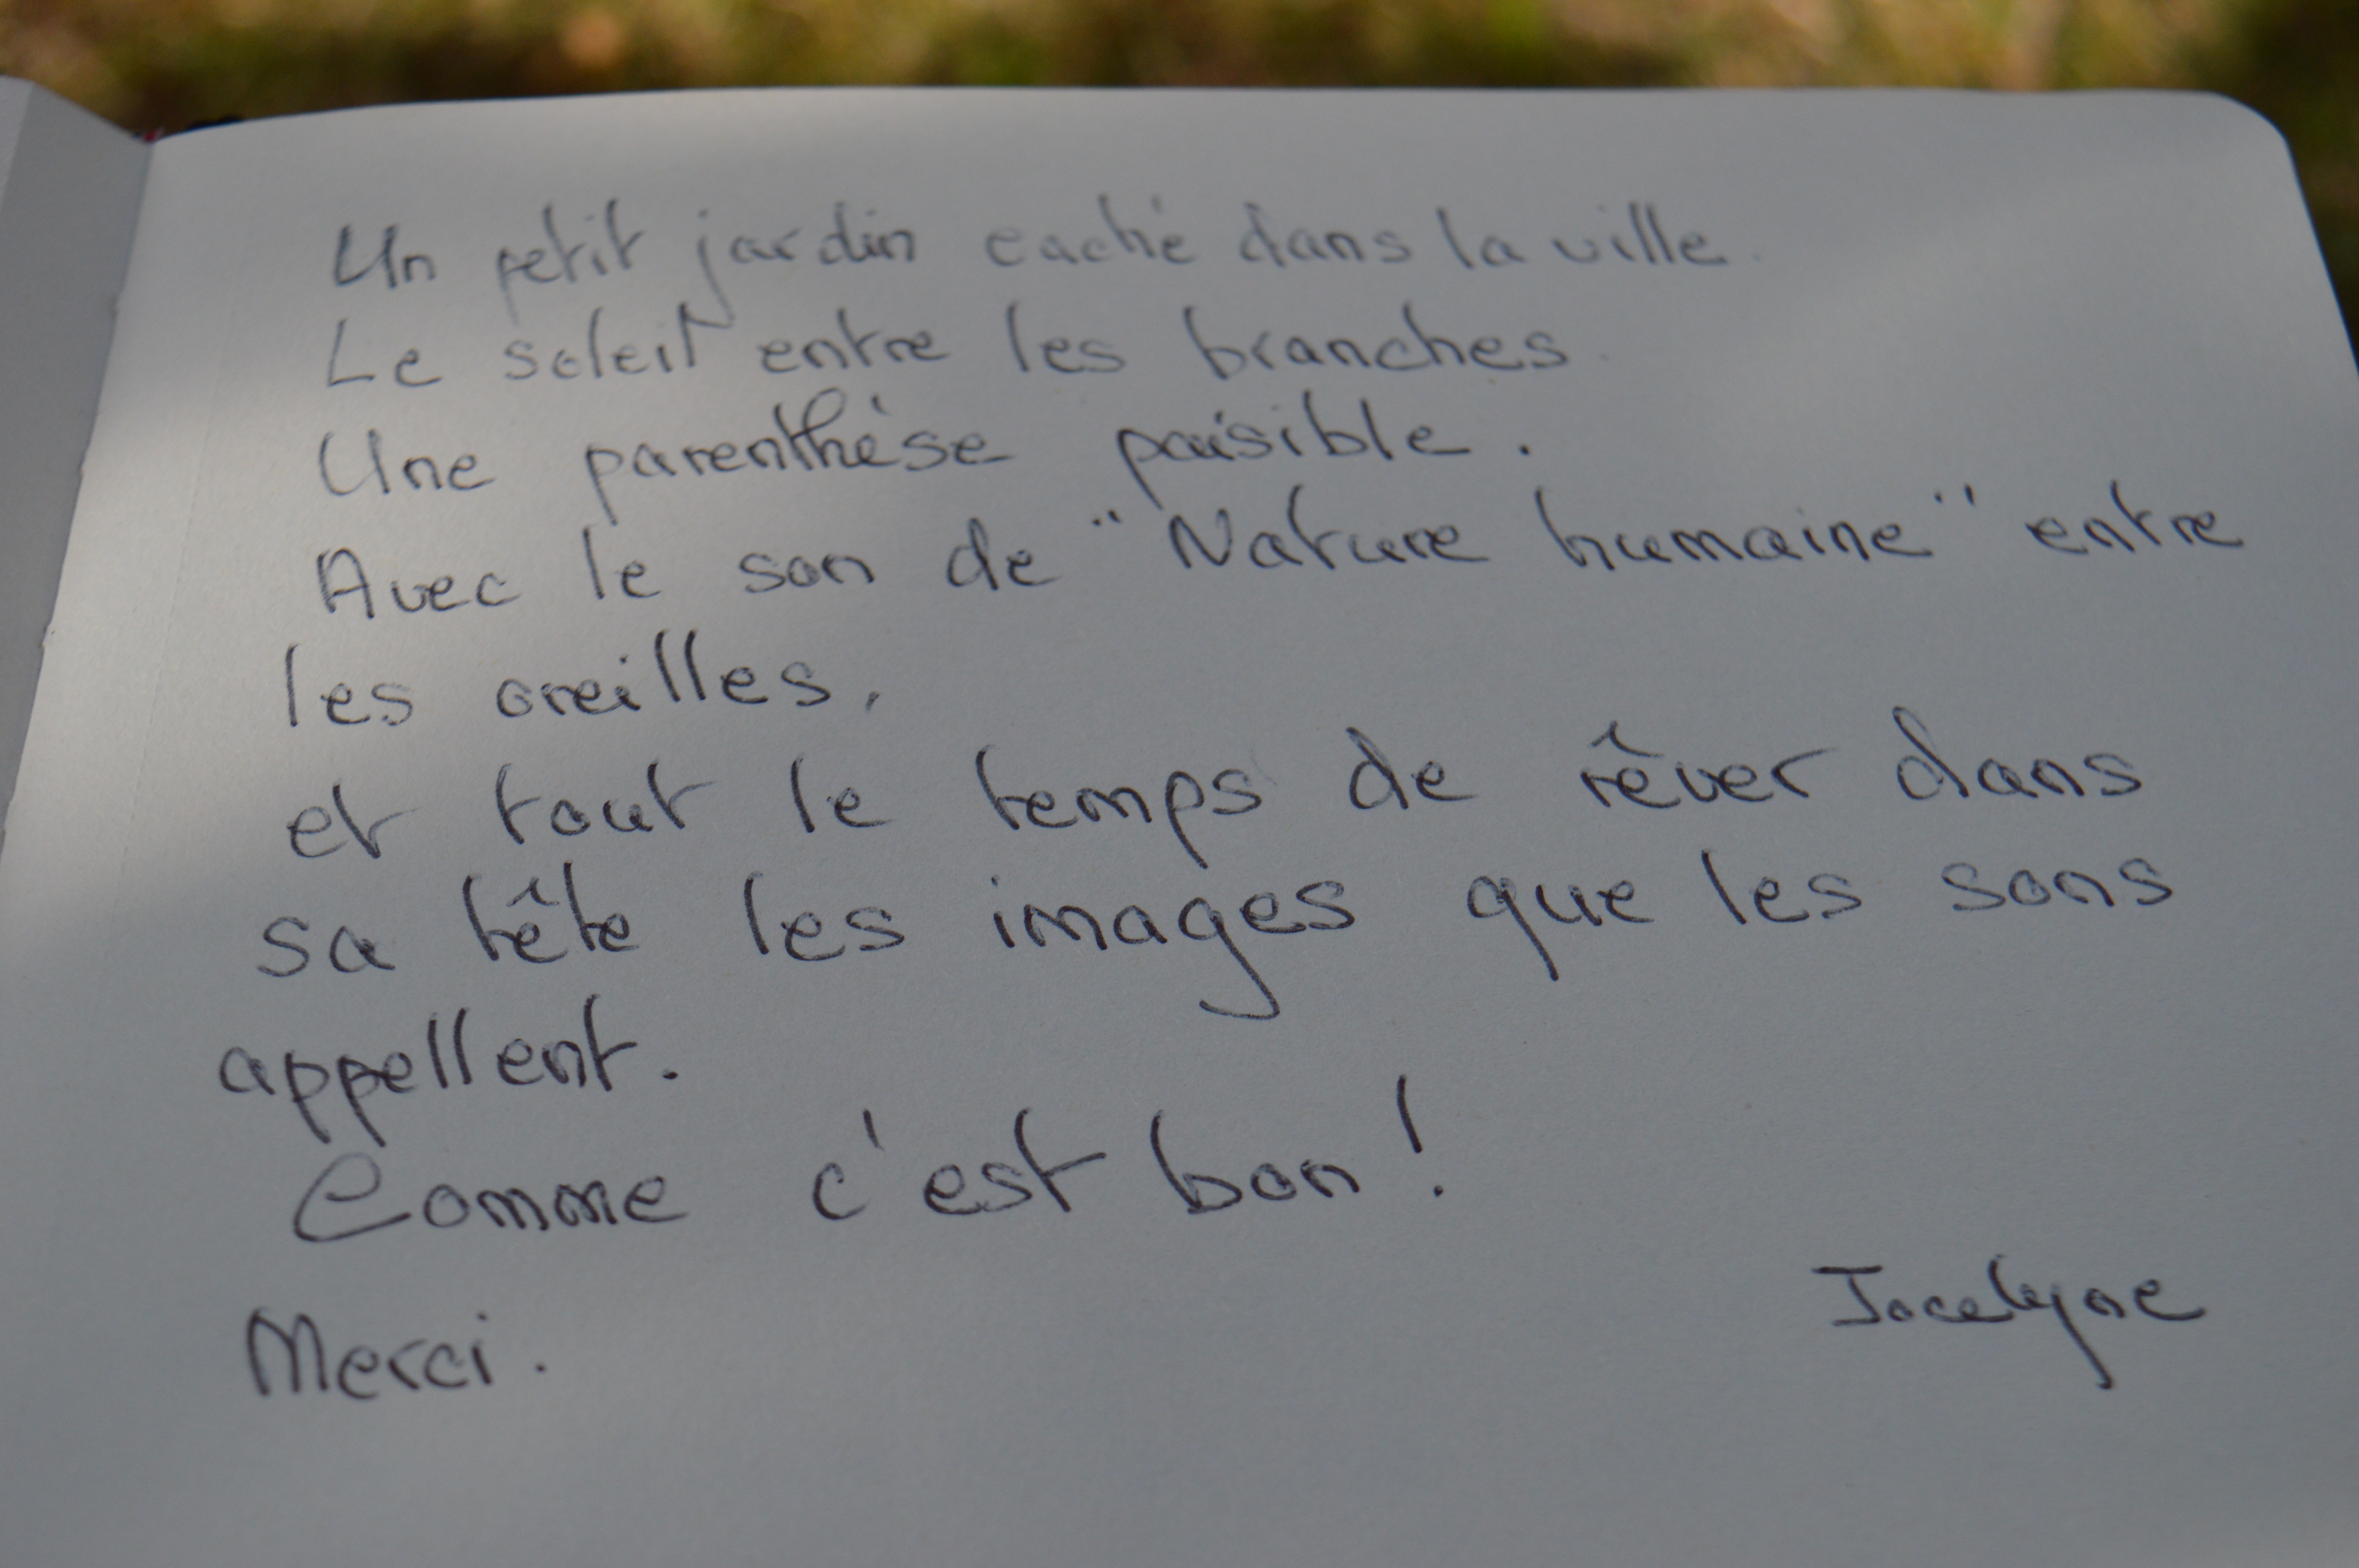 Un petit jardin caché dans la ville.
Le soleil entre les branches.
Une parenthèse paisible.
Avec le son de "Nature humaine" entre
les oreilles,
et tout le temps de rêver dans
sa tête les images que les sons
appellent.
Comme c'est bon !
Jocelyne
Merci.